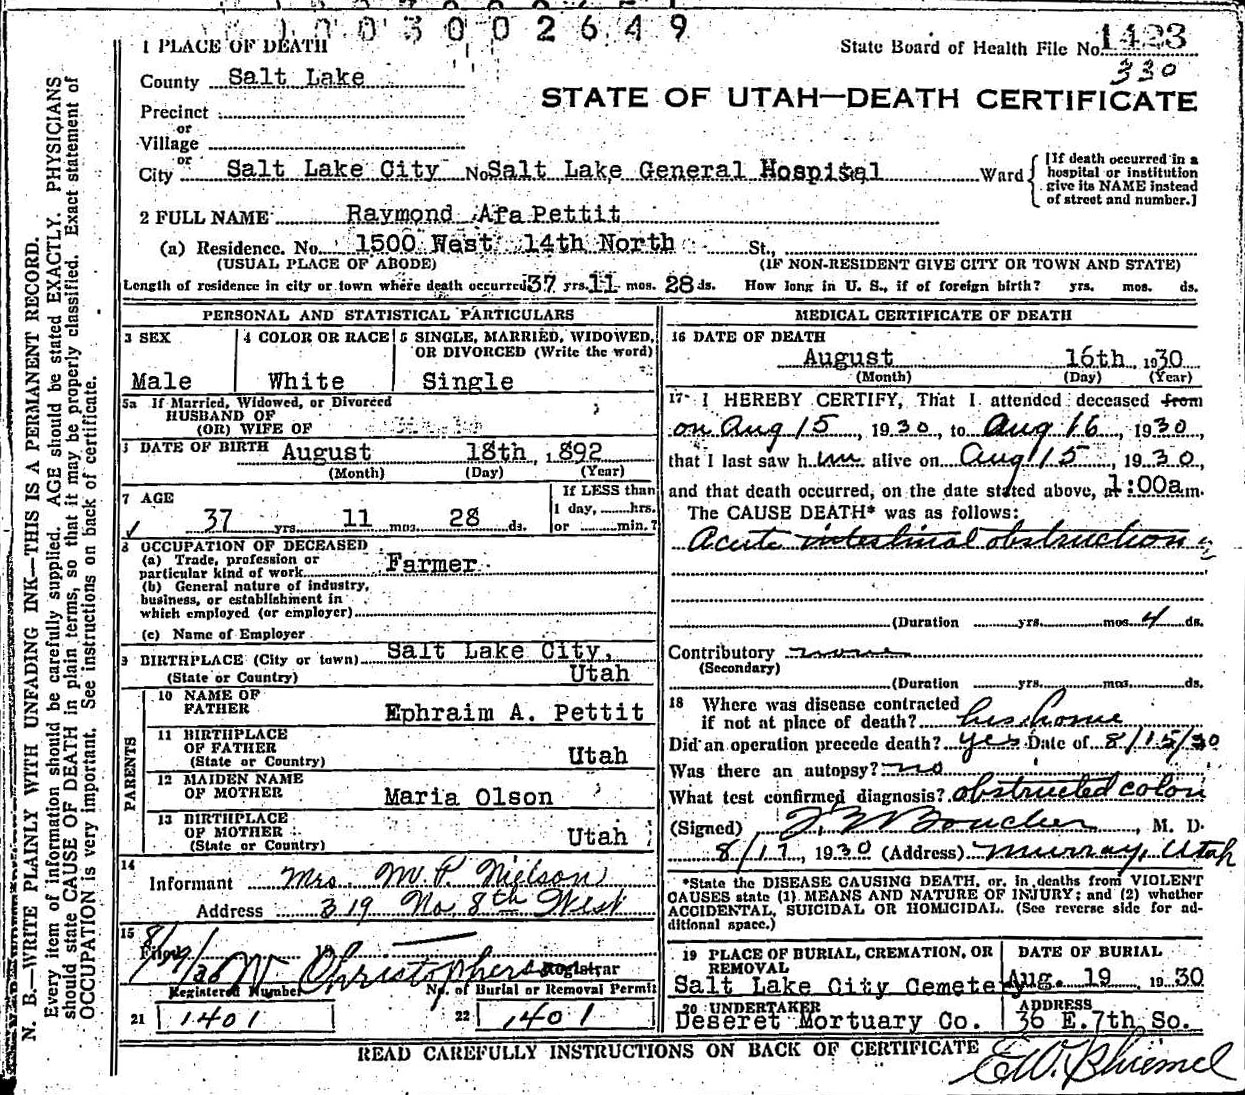 1003002649
1 PLACE OF DEATH
State Board of Health File No. 1423
330
County Salt Lake
STATE OF UTAH—DEATH CERTIFICATE
Precinct
or
Village
or
City Salt Lake City No Salt Lake General Hospital Ward
[If death occurred in a hospital or institution give its NAME instead of street and number.]
2 FULL NAME Raymond Afa Pettit
(a) Residence. No. 1500 West 14th North St.,
(USUAL PLACE OF ABODE) (IF NON-RESIDENT GIVE CITY OR TOWN AND STATE)
Length of residence in city or town where death occurred 37 yrs. 11 mos. 28 ds. How long in U. S., if of foreign birth? yrs. mos. ds.
PERSONAL AND STATISTICAL PARTICULARS
3 SEX 4 COLOR OR RACE 5 SINGLE, MARRIED, WIDOWED,
OR DIVORCED (Write the word)
Male White Single
5a If Married, Widowed, or Divorced
HUSBAND OF
(OR) WIFE OF
6 DATE OF BIRTH August 18th, 1892
(Month) (Day) (Year)
7 AGE If LESS than
1 day, hrs.
37 yrs. 11 mos. 28 ds. or min.?
8 OCCUPATION OF DECEASED
(a) Trade, profession or
particular kind of work Farmer
(b) General nature of industry,
business, or establishment in
which employed (or employer)
(c) Name of Employer
9 BIRTHPLACE (City or town) Salt Lake City,
(State or Country) Utah
PARENTS
10 NAME OF
FATHER Ephraim A. Pettit
11 BIRTHPLACE
OF FATHER
(State or Country) Utah
12 MAIDEN NAME
OF MOTHER Maria Olson
13 BIRTHPLACE
OF MOTHER
(State or Country) Utah
14
Informant Mrs. M. P. Nielson
Address 319 No. 8th West
15
Filed 8/19/30 W Christophers Registrar
Registered Number No. of Burial or Removal Permit
21 1401 22 1401
MEDICAL CERTIFICATE OF DEATH
16 DATE OF DEATH
August 16th, 1930
(Month) (Day) (Year)
17 I HEREBY CERTIFY, That I attended deceased from
on Aug 15, 1930, to Aug 16, 1930
that I last saw him alive on Aug 15, 1930,
and that death occurred, on the date stated above, at 1:00a.m.
The CAUSE DEATH* was as follows:
Acute intestinal obstruction
(Duration yrs. mos. 4 ds.
Contributory none
(Secondary)
(Duration yrs. mos. ds.
18 Where was disease contracted
if not at place of death? his home
Did an operation precede death? yes Date of 8/15/30
Was there an autopsy? no
What test confirmed diagnosis? obstructed colon
(Signed) Boucher, M. D.
8/17, 1930 (Address) Murray, Utah
*State the DISEASE CAUSING DEATH, or, in deaths from VIOLENT
CAUSES state (1) MEANS AND NATURE OF INJURY; and (2) whether
ACCIDENTAL, SUICIDAL OR HOMICIDAL. (See reverse side for ad-
ditional space.)
19 PLACE OF BURIAL, CREMATION, OR
REMOVAL DATE OF BURIAL
Salt Lake City Cemetery Aug. 19 1930
20 UNDERTAKER ADDRESS
Deseret Mortuary Co. 36 E. 7th So.
READ CAREFULLY INSTRUCTIONS ON BACK OF CERTIFICATE
N. B.—WRITE PLAINLY WITH UNFADING INK—THIS IS A PERMANENT RECORD.
Every item of information should be carefully supplied. AGE should be stated EXACTLY. PHYSICIANS
should state CAUSE OF DEATH in plain terms, so that it may be properly classified. Exact statement of
OCCUPATION is very important. See instructions on back of certificate.